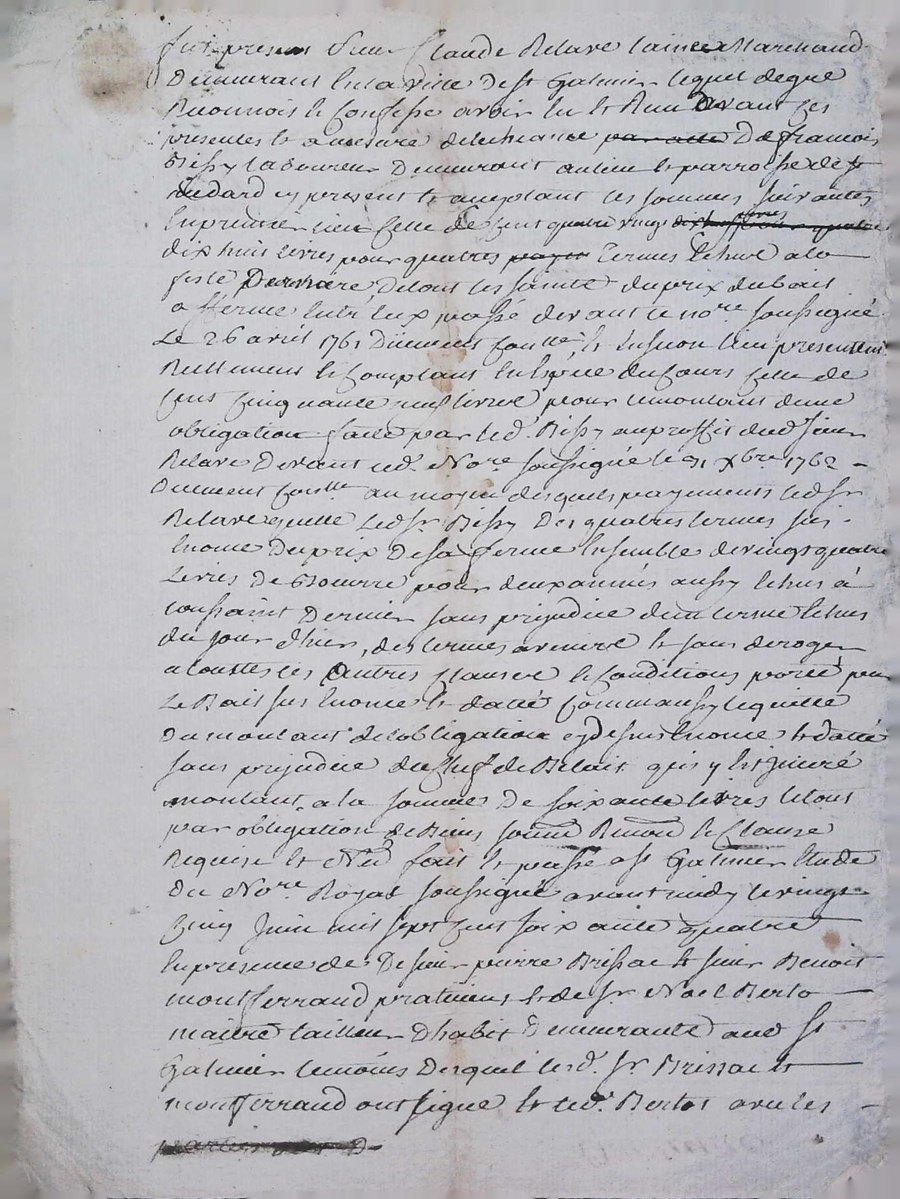 fut present sieur Claude Relave laines Marchand
Demeurant en la ville de st Galmier lequel de gré
Reconnois et Confesse avoir eu et Reçu devant ces
presentes et a mesure decheance par acte De francois
Bissy Laboureur Demeurant au lieu et parroisse de st
medard cy present et aceptant les sommes suivantes
En premier lieu Celle de Cent quatre vingt livres
dix huit Livres pour quatres payes termes Echus a la
feste Derniere de tous les saints du prix du bail
a fferme Entre Eux passé devant le no.re soussigné
Le 26 avril 1761 Duement Con.llé et Ensuon lieu presentemt
Rellement et Comptant En Espece du Cours Celle de
Cent Cinquante neuf livres pour le montant dune
obligation faite par led. Bissy au proffit dud sieur
Relave Devant led. No.re soussigné le 31 xbre 1762
Duement Con.llé au moyen desquels payements led sr
Relave quitte Led sr Bissy Des quatres termes sus
Enoncé Du prix De sa ferme Ensemble de vingt quatre
Livres De Beurre pour deux années aussy Echus a
toussaint Dernier sans prejudice d'un terme Echus
du jour d'hier, des termes avenire et sans deroger
a touttes les Autres Clauses et Conditions portée par
Le Bail sus Enoncé et datté Comme aussy le quitte
Du montant de lobligation cy dessus Enoncé et datté
sans prejudice du Chef de Betail qui y Est Jnseré
montant a la sommes De soixante livres le tout
par obligation de Biens soumis Renon et Clause
Requise et Necd fait et passé a st Galmier Etude
Du No.re Royal soussigné avant midy le vingt
Cinq Juin mil sept Cent soixante quatre
En presence de De sieur pierre Brissac et sieur Benoit
montferrand pratinens et de sr Noel Berto
maitre tailleur D'habit Demeurants aud st
Galmier temoins Desquel led. sr Brissac et
montferrand ont signé et led. Bertot avec les
parties